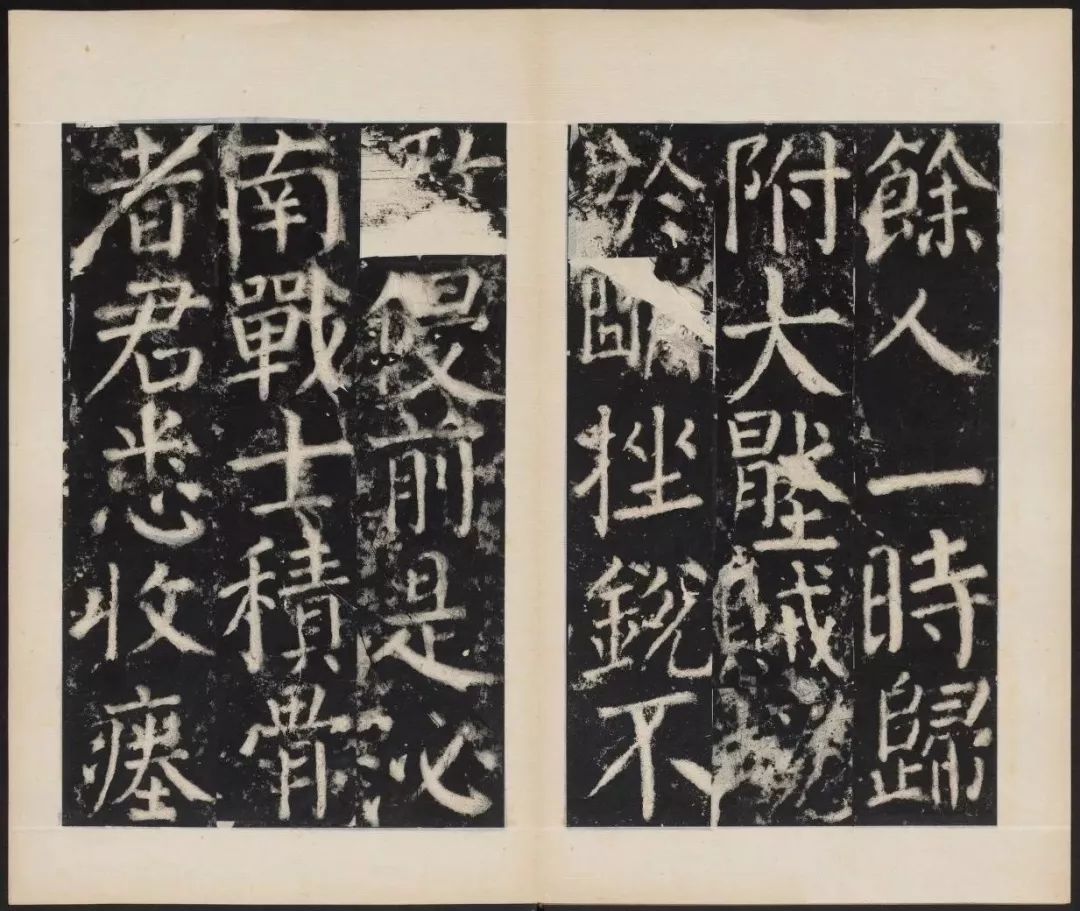 餘人一時歸
附大壓賊
於挫銳不
敢侵前是必
南戰士積骨
者君悉收瘞